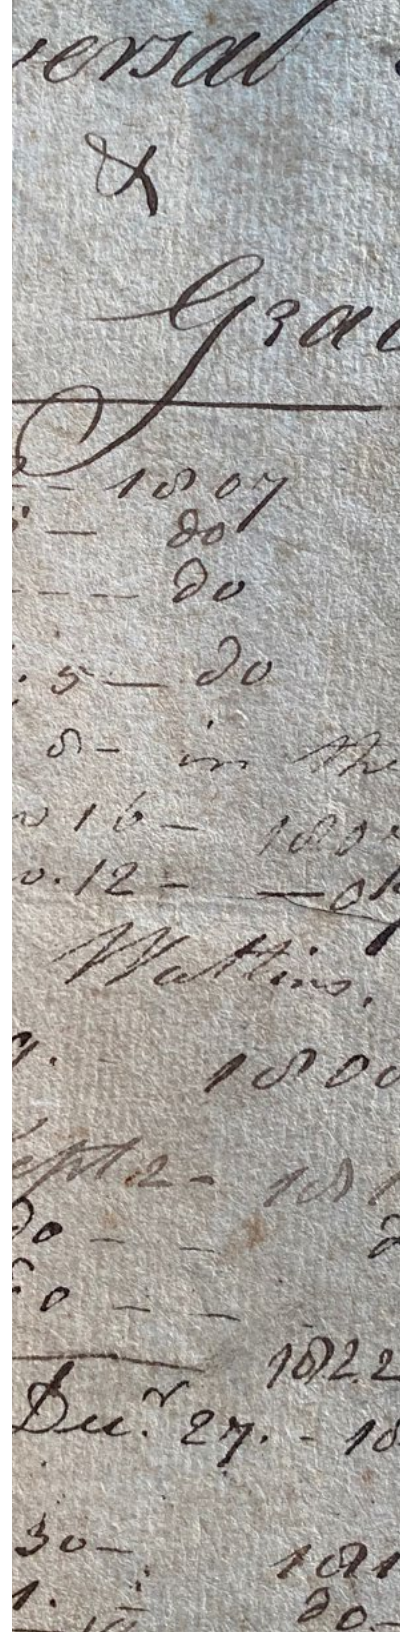 ersal
&
Grac
- 1807
- do
- - - do
5 - do
8 - in the
16 - 180
o. 12 - -
Watkins.
9. - 180
ept 2 - 181
do - -
do - -
1822
Decr. 27. - 18
30 - 181
1. - do -